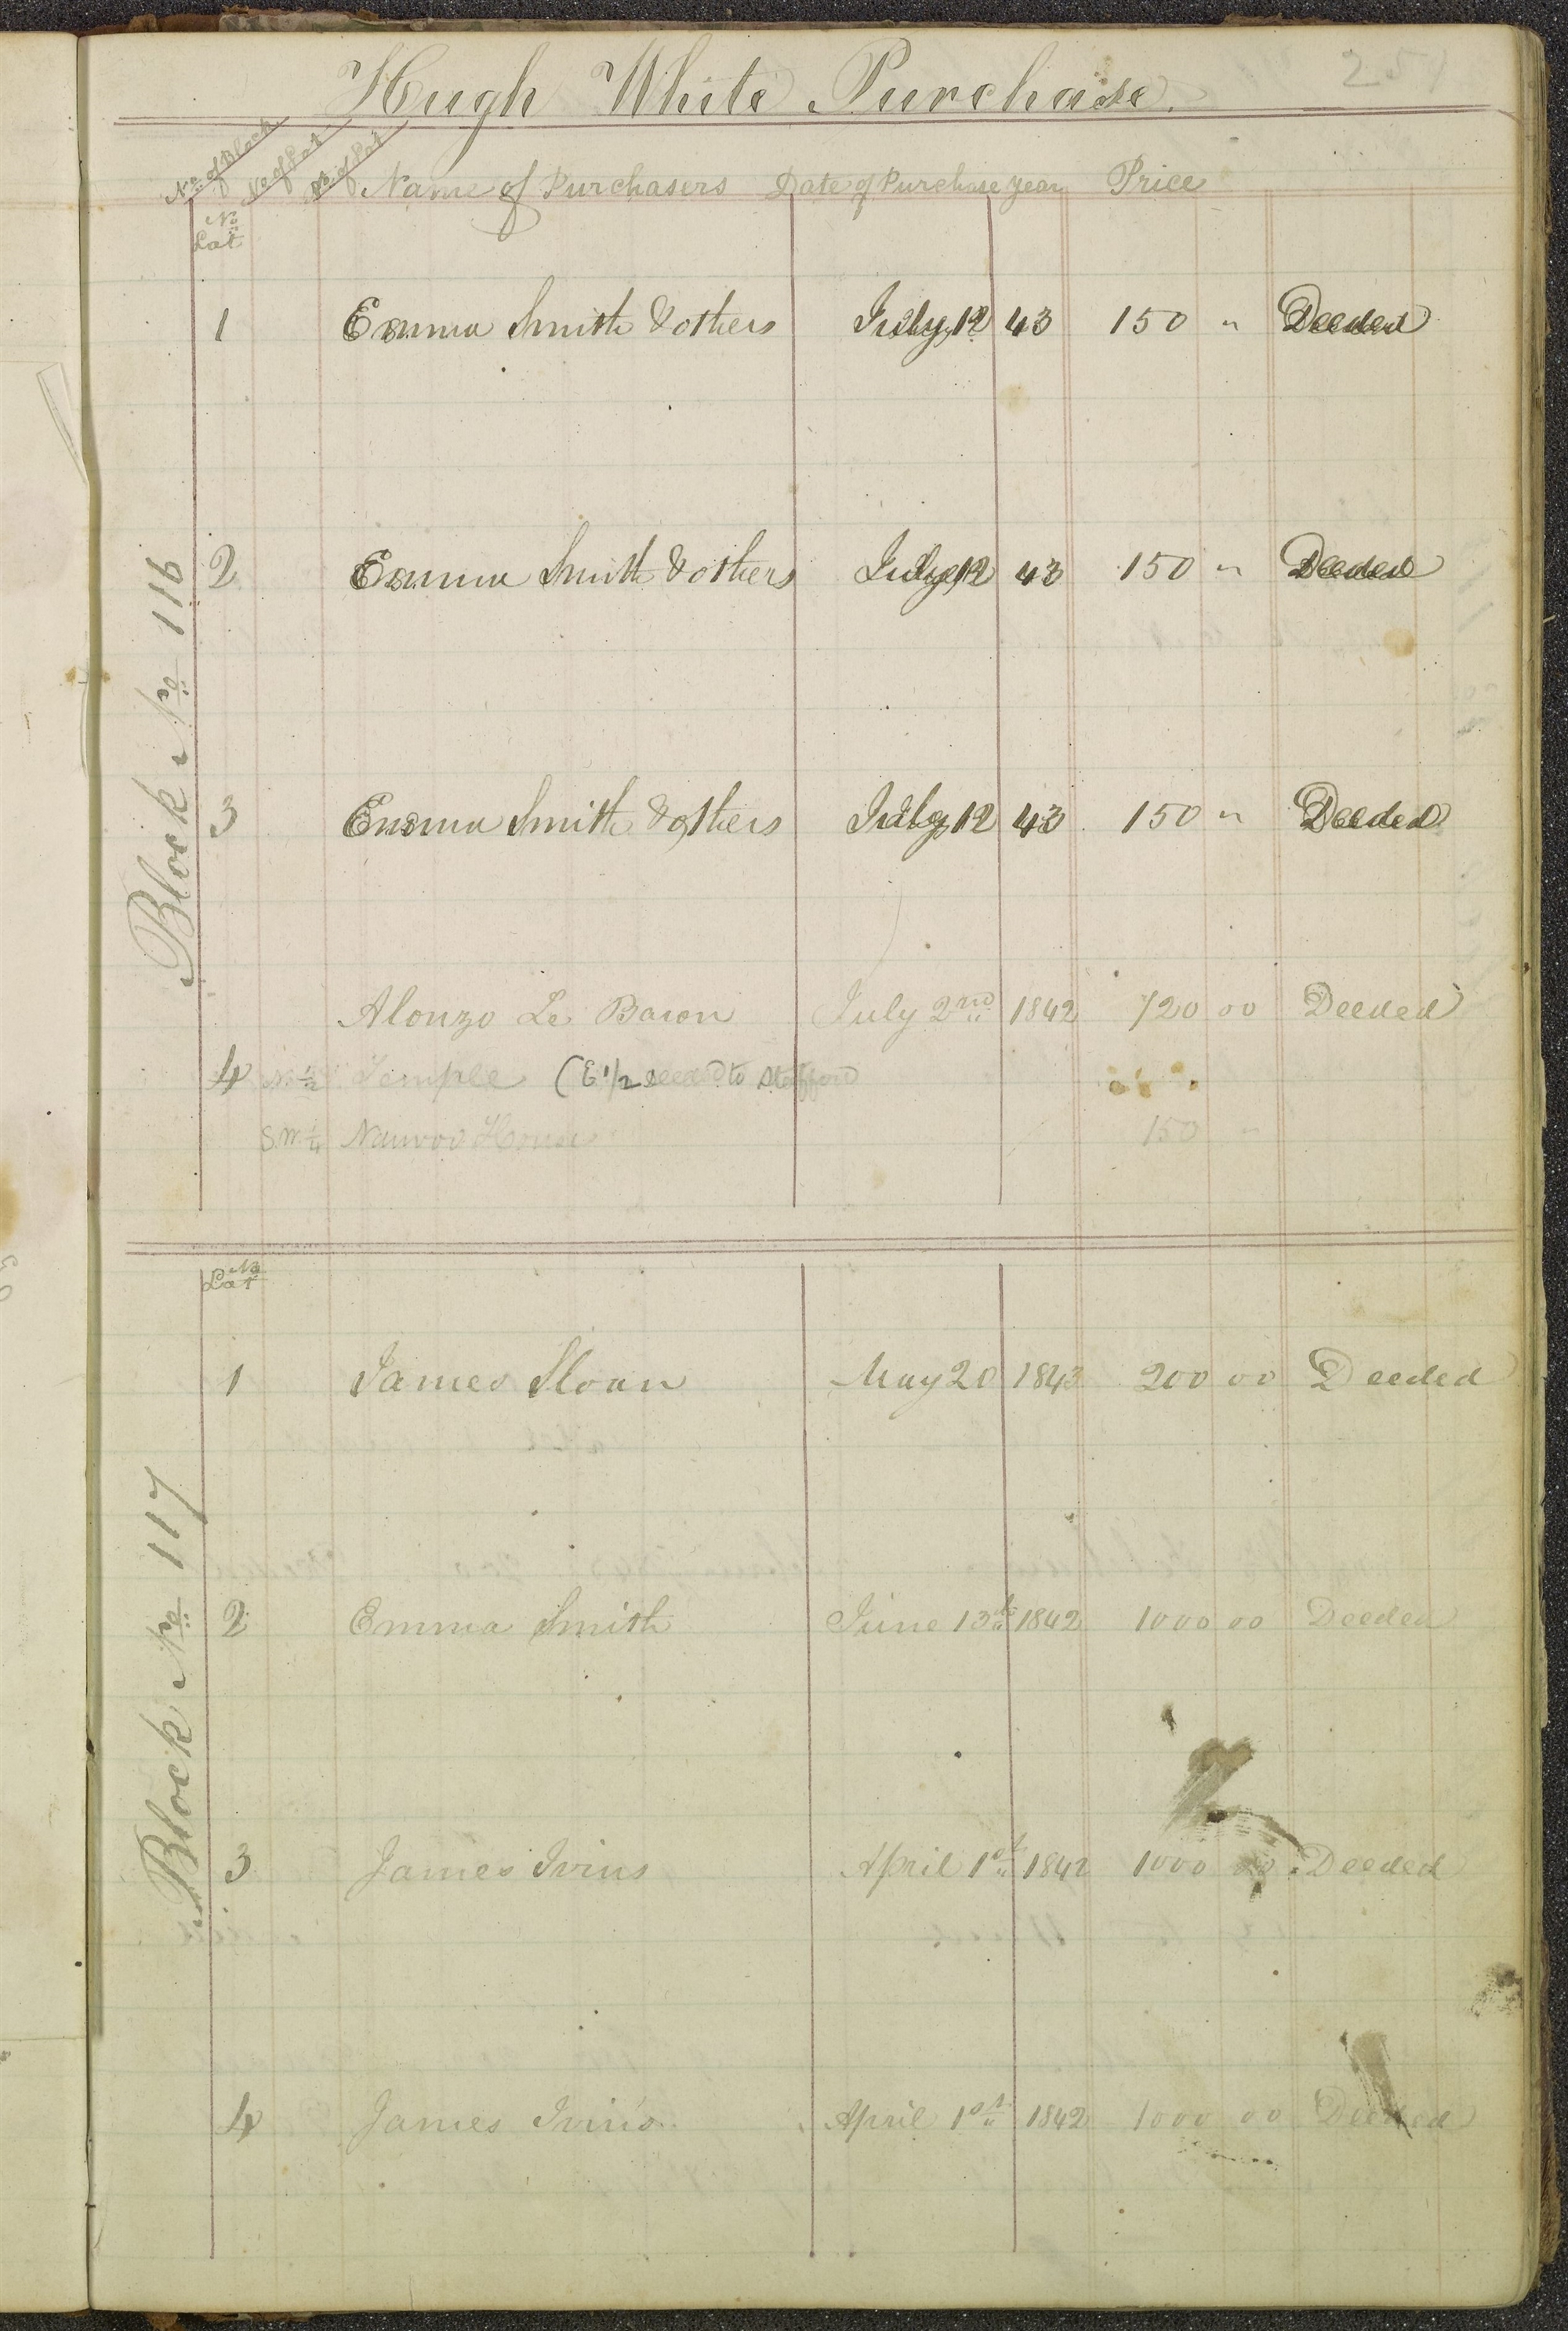 251
Hugh White Purchase.
No. of Block No of Lot Pt. of Lot Name of Purchasers Date of Purchase year Price
No. Lot
Block No. 116
1 Emma Smith & others July 12 43 150 " Deeded
2 Emma Smith & others July 12 43 150 " Deeded
3 Emma Smith & others July 12 43 150 " Deeded
Alonzo Le Baron July 2nd 1842 720 00 Deeded
4 N. 1/2 Temple (E 1/2 deeded to Stafford
S.W. 1/4 Nauvoo House 150 "
No. Lot
Block No. 117
1 James Sloan May 20 1843 200 00 Deeded
2 Emma Smith June 13th 1842 1000 00 Deeded
3 James Ivins April 1st 1842 1000 00 Deeded
4 James Ivins April 1st 1842 1000 00 Deeded